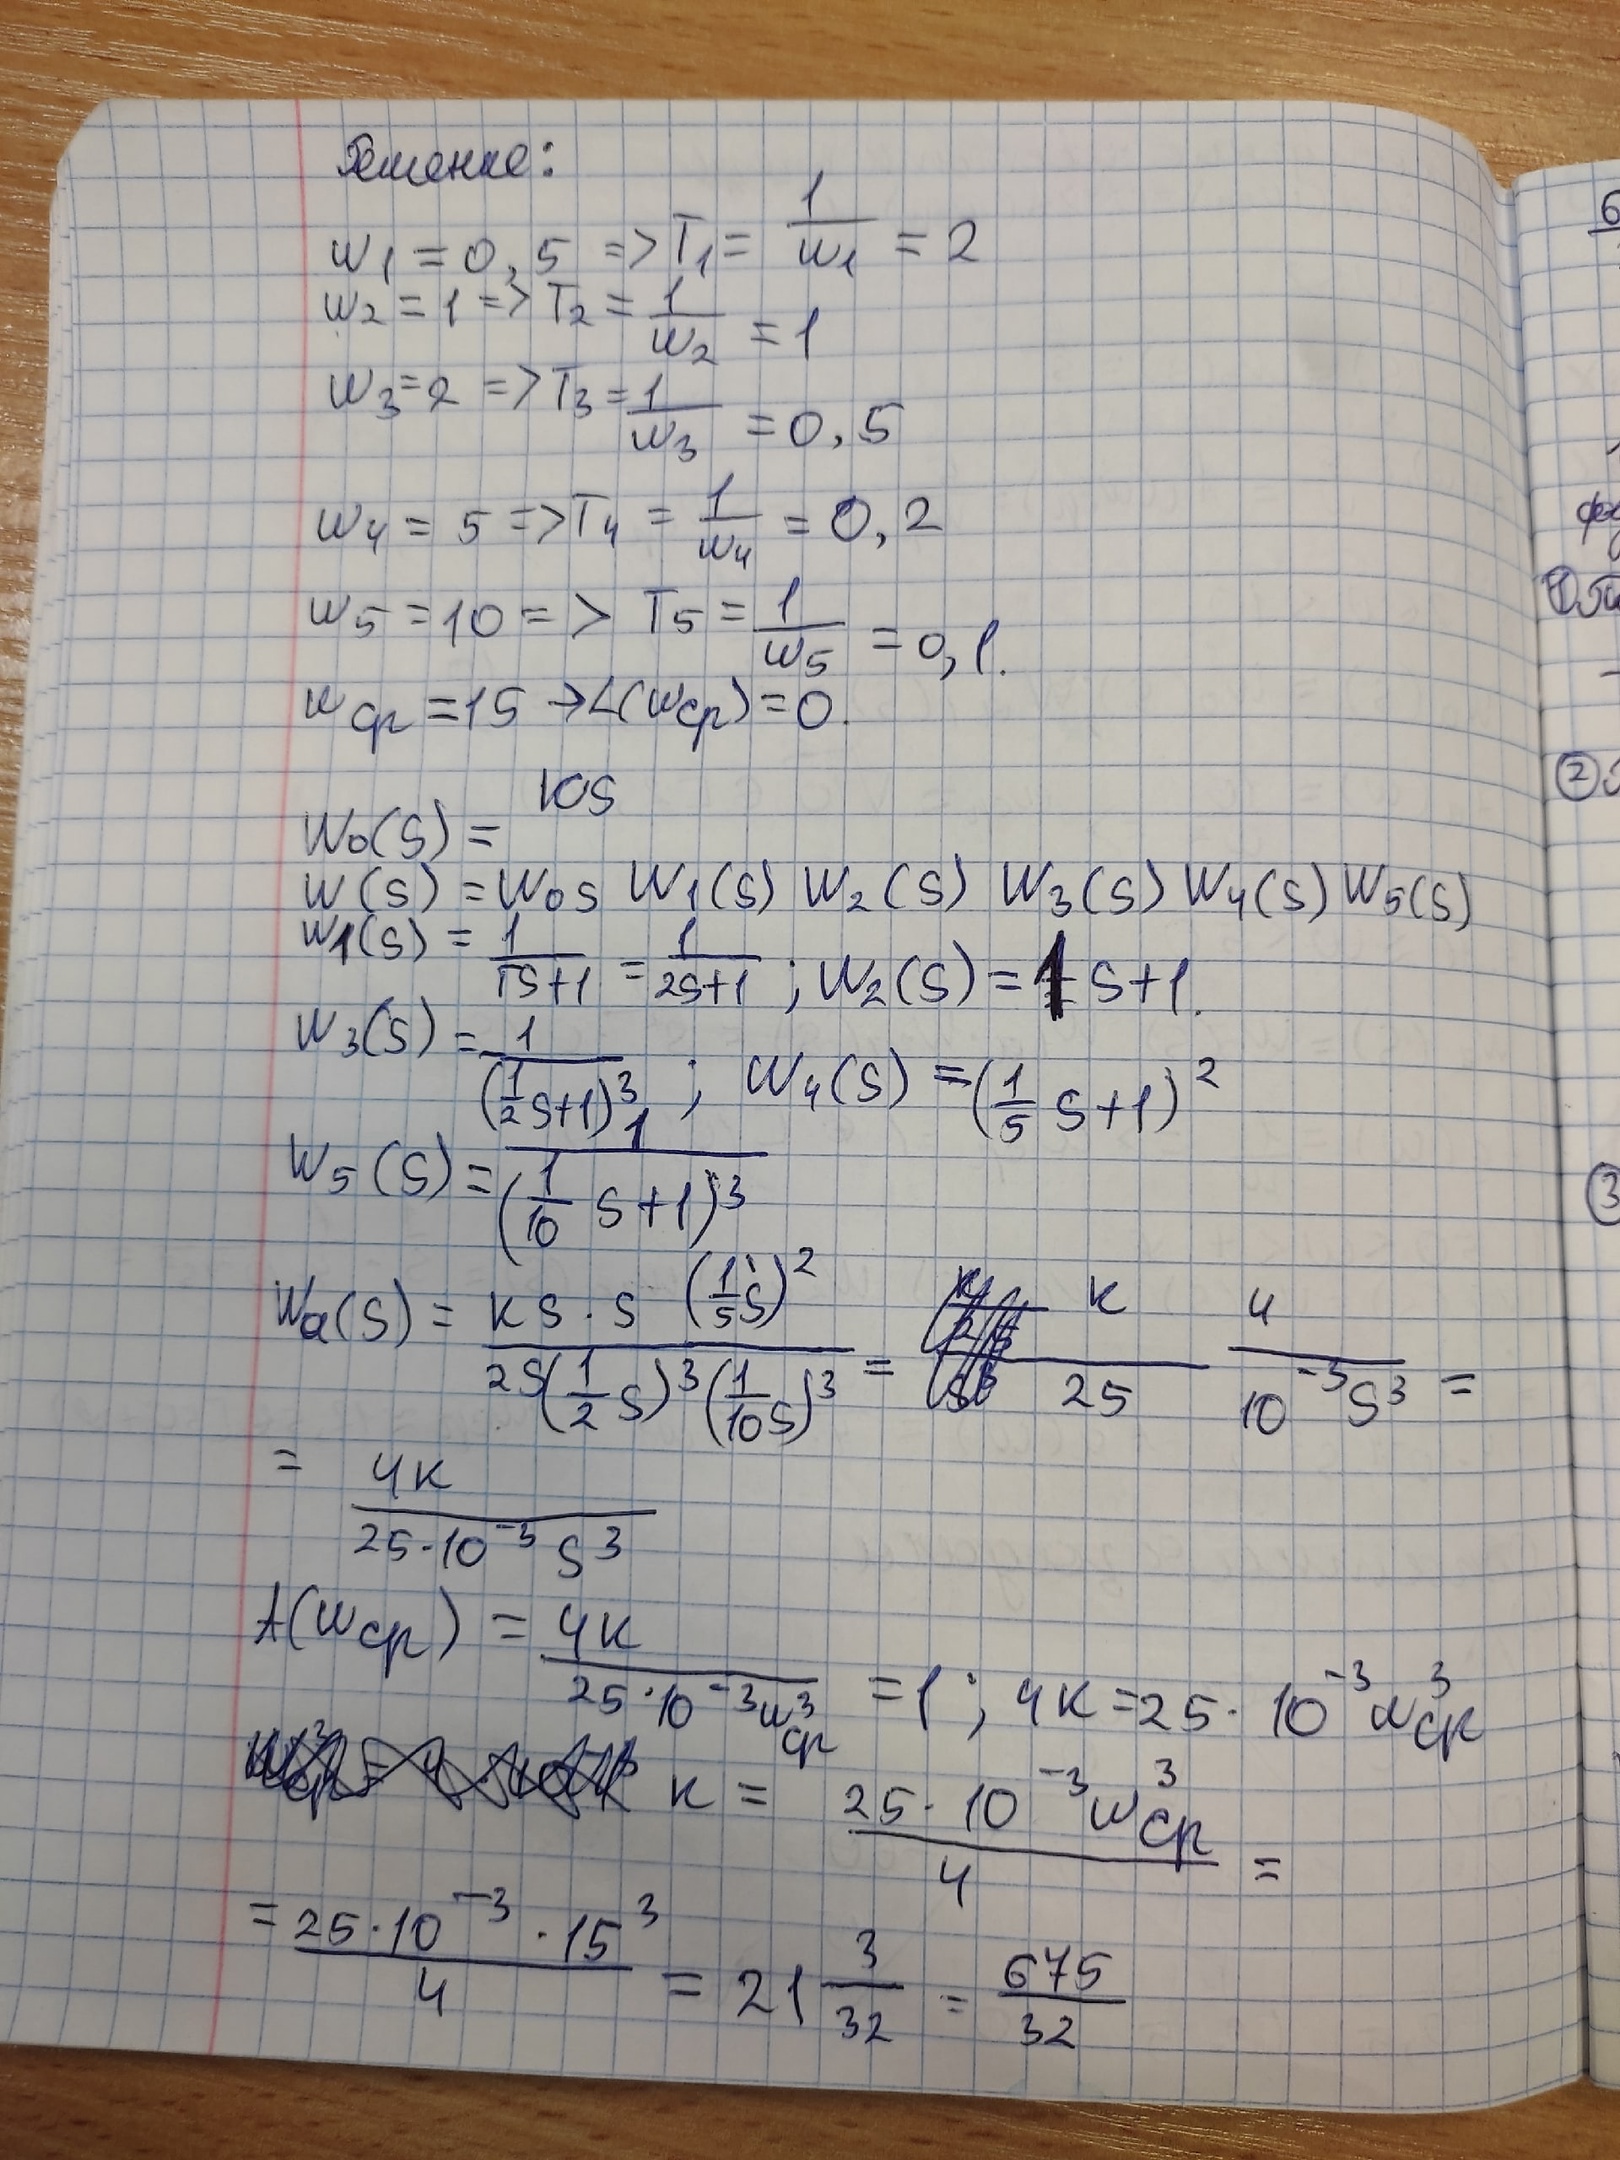 Решение:
w1 = 0,5 => T1 = 1/w1 = 2
w2 = 1 => T2 = 1/w2 = 1
w3 = 2 => T3 = 1/w3 = 0,5
w4 = 5 => T4 = 1/w4 = 0,2
w5 = 10 => T5 = 1/w5 = 0,1.
wср = 15 → L(wср) = 0.
W0(s) = ks
W(s) = W0s W1(s) W2(s) W3(s) W4(s) W5(s)
W1(s) = 1/(Ts+1) = 1/(2s+1) ; W2(s) = 1 s+1.
W3(s) = 1/(1/2 s+1)^3 ; W4(s) = (1/5 s+1)^2
W5(s) = 1/(1/10 s+1)^3
Wa(s) = ks · s (1/5 s)^2 / 2s(1/2 s)^3 (1/10 s)^3 = k/25 4/10^-3 s^3 =
= 4k/25·10^-3 s^3
A(wср) = 4k/25·10^-3 wср^3 = 1 ; 4k = 25·10^-3 wср^3
k = 25·10^-3 wср^3/4 =
= 25·10^-3 · 15^3/4 = 21 3/32 = 675/32
6
1
2
3